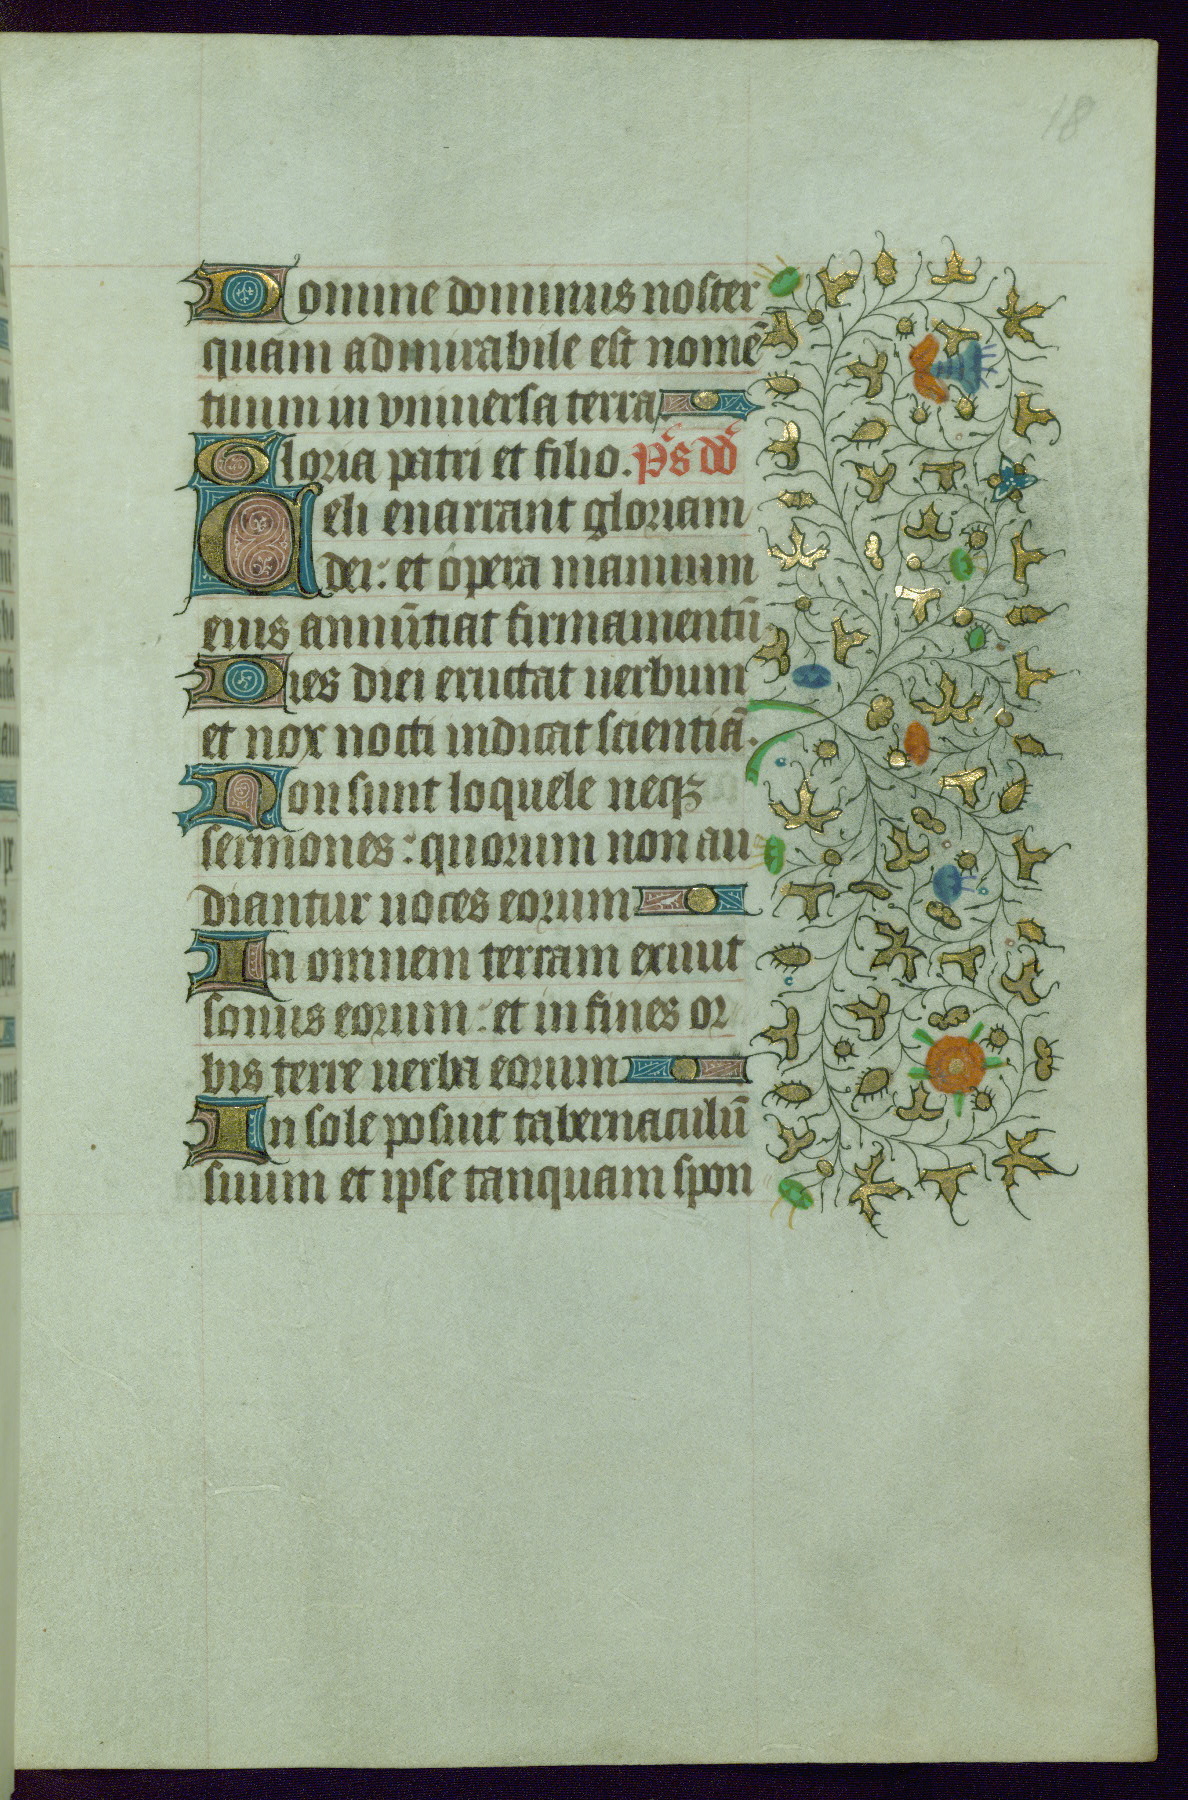 18
Domine dominus noster
quam admirabile est nomē
tuum in vniuersa terra
Gloria patri et filio. p̄s dd̄
Celi enarrant gloriam
dei: et opera manuum
eius annūtiat firmamentū
Dies diei eructat uerbum
et nox nocti indicat scientiā.
Non sunt loquele neqꝫ
sermones: quorum non au
diantur uoces eorum
In omnem terram exiuit
sonus eorum: et in fines or
bis terre uerba eorum
In sole posuit tabernaculū
suum et ipse tanquam spon